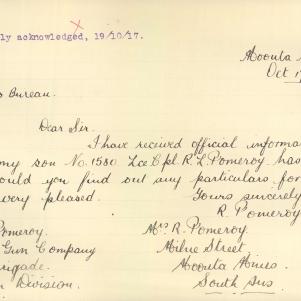 ly acknowledged, 19/10/17.
Moonta
Oct 1
o Bureau.
Dear Sir.
I have received official informa
my son No. 1580 Lce Cpl. R. L. Pomeroy has
ould you find out any particulars for
very pleased.
Yours sincerely
R. Pomeroy
omeroy.
Gun Company
rigade.
Division.
Mrs R. Pomeroy.
Milne Street,
Moonta Mines
South Aus